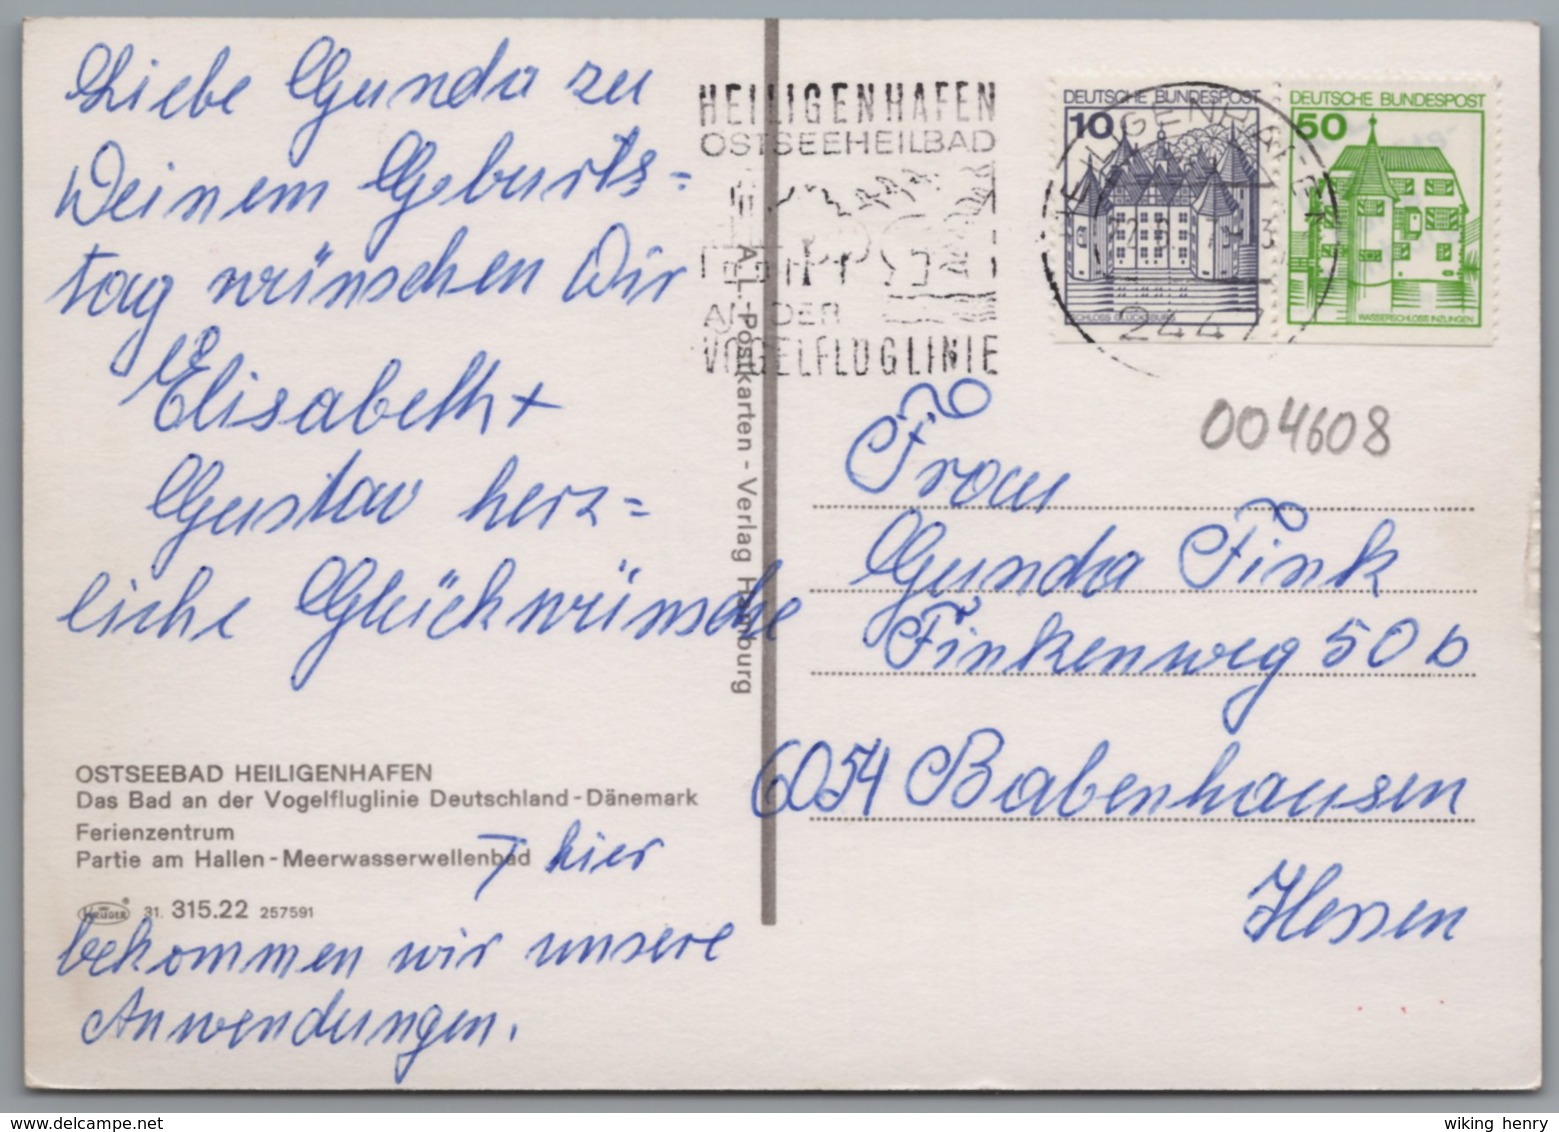 Liebe Gunda zu
Deinem Geburts=
tag wünschen Dir
Elisabeth +
Gustav herz=
liche Glückwünsche
OSTSEEBAD HEILIGENHAFEN
Das Bad an der Vogelfluglinie Deutschland-Dänemark
Ferienzentrum
Partie am Hallen-Meerwasserwellenbad
hier
KRÜGER ® 31. 315.22 257591
bekommen wir unsere
Anwendungen.
A.L.-Postkarten-Verlag Hamburg
HEILIGENHAFEN
OSTSEEHEILBAD
AN DER
VOGELFLUGLINIE
DEUTSCHE BUNDESPOST
10
SCHLOSS GLÜCKSBURG
DEUTSCHE BUNDESPOST
50
WASSERSCHLOSS INZLINGEN
HEILIGENHAFEN
2447
004608
Frau
Gunda Fink
Finkenweg 50b
6054 Babenhausen
Hessen
wiking henry